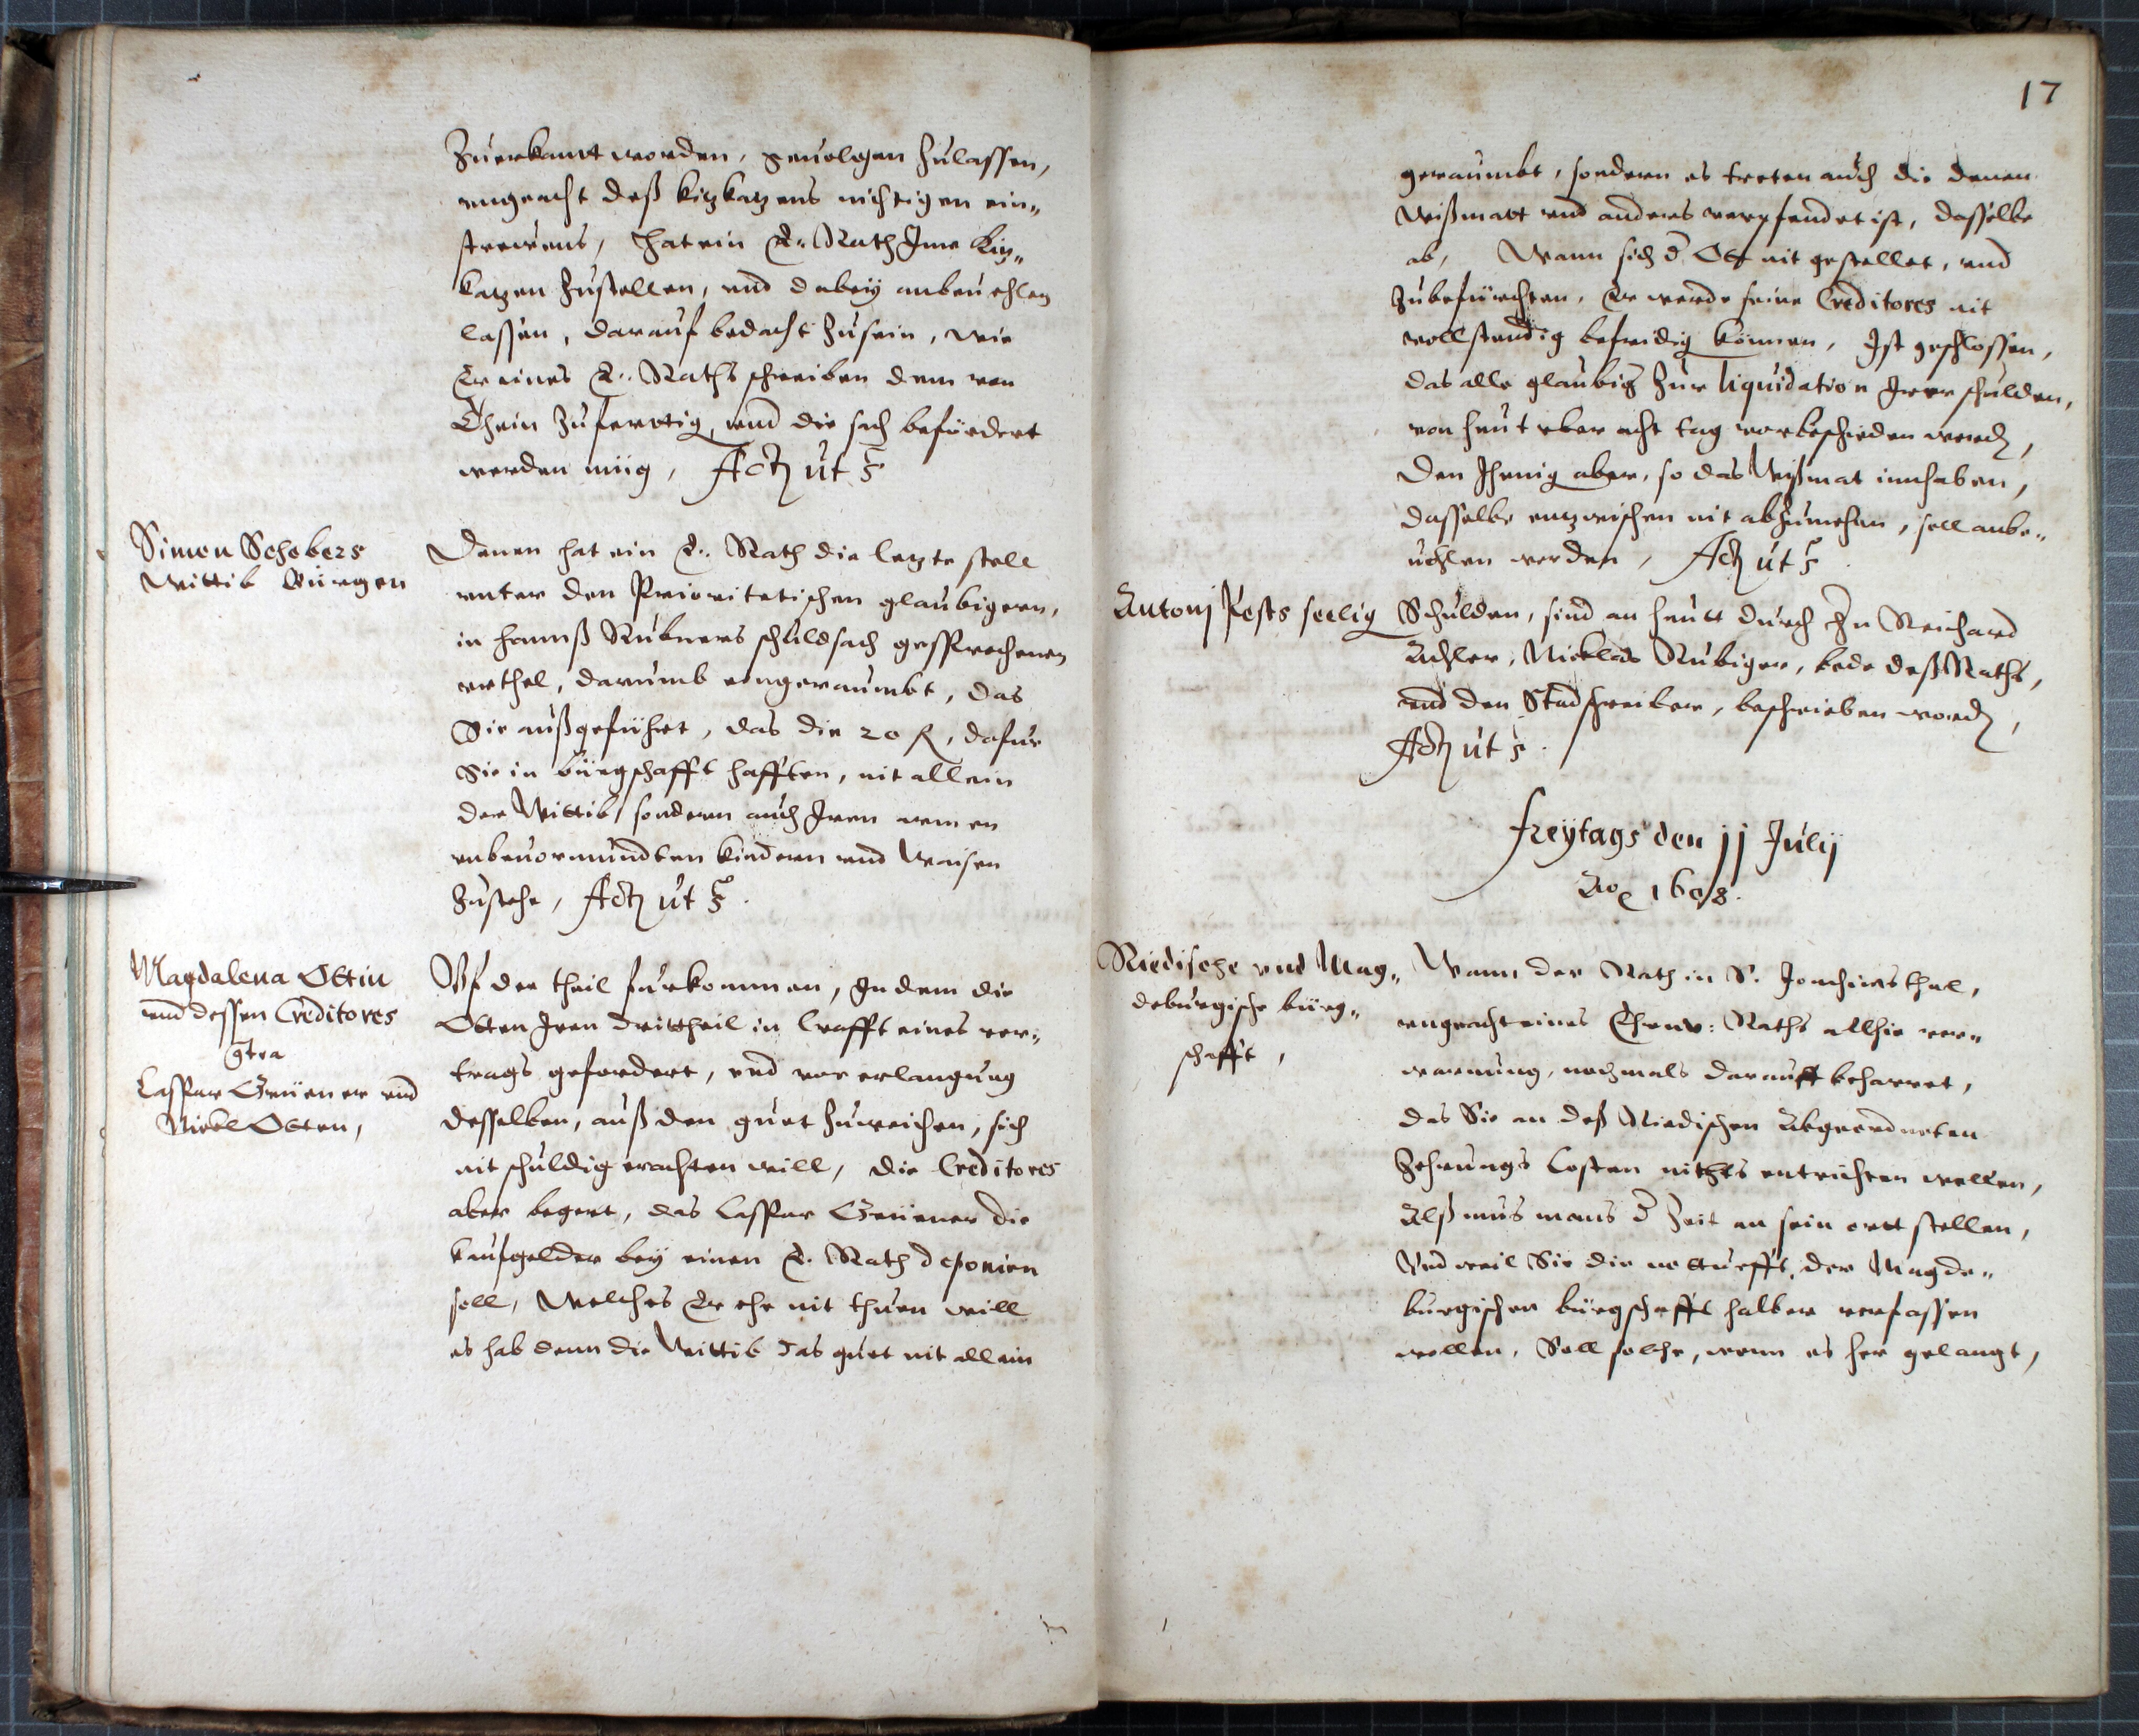 Zuerkannt worden, geuolgen Zulassen,
vngeacht deß Kizkazens nichtigen ein„
strewens, Hat ein E. Rath Ime Kiz„
kazen Zustellen, vnd dabeÿ anbeuehlen
lassen, darauf bedacht Zusein, wie
Er eines E. Raths schreiben dem von
Thein Zufertig, vnd die sach befürdert
werden müg, Actũ ut s̄
Simon Schobers
Wittib Bürgen
Denen hat ein E. Rath die letzte stell
vnter den Prioritetischen glaubigern,
in Hannß Rubners schuldsach gesprochenen
vrthel, darumb eingeraumbt, das
Sie außgeführt, das die 20 fl, dafur
Sie in bürgschafft hafften, nit allein
der Wittib, sondern auch Iren armen
vnbeuormundten Kindern vnd Waisen
Zustehe, Actũ ut s̄.
Magdalena Ottin
vnd dessen Creditores
c̄tra
Caspar Grüener vnd
Nickl Otten,
Vf der theil furkommen, In dem die
Otten Iren drittheil in Crafft eines ver„
trags gefordert, vnd vor erlangung
desselben, auß den guet Zuweichen, sich
nit schuldig erachten will, die Creditores
aber begert, das Caspar Grüener die
kaufgelder beÿ einen E. Rath deponirn
soll, Welches Er ehr nit thuen will
es hab denn die Wittib das guet nit allein
17
geraumbt, sondern es tretten auch die denen
Wißmatt vnd anders verpfendet ist, dasselbe
ab, Wann sich d̄ Ott nit gestellet, vnd
Zubefürchten, Er werde seine Creditores nit
vollstendig befridig können, Ist geschlossen,
das alle glaubig Zur liquidation Irer schulden,
von heut vber acht tag vorbeschieden werdn,
Den Jhenig aber, so das Wißmat innhaben,
dasselbe entzwischen nit abzumehen, soll anbe„
uohlen werden, Actũ ut s̄.
Antonj Pests seelig
Schulden, sind an heutt durch Hn Reichard
Adler, Nicklas Rubiger, bede deß Raths,
vnd den Stadschreiber, beschrieben wordn,
Actũ ut s̄.
Freÿtags den 11 Julÿ
Ao 1608.
Riedische vnd Mag„
deburgische bürg„
schafft,
Wann der Rath in S. Joachimsthal,
vngeacht eines Ehrnv: Raths allhie ver„
warnung, nochmals darauff beharret,
das Sie an deß Riedischen Abgeordneten
Zehrungs Costen nichts entrichten wollen,
Alß mus mans d̄ Zeit an sein ortt stellen,
Vnd weil Sie die notturfft, der Magde„
burgischen bürgschafft halber verfassen
wollen, Soll solche, wenn es her gelangt,